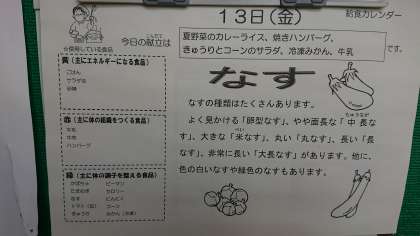 13日(金)
給食カレンダー
こんだて
今日の献立は
夏野菜のカレーライス、焼きハンバーグ、
きゅうりとコーンのサラダ、冷凍みかん、牛乳
です。
☆使用している食品
黄(主にエネルギーになる食品)
ごはん
サラダ油
砂糖
赤(主に体の組織をつくる食品)
牛乳
ハンバーグ
緑(主に体の調子を整える食品)
かぼちゃ ピーマン
たまねぎ セロリー
なす にんにく
トマト(缶) コーン
きゅうり みかん(冷凍)
なす
なすの種類はたくさんあります。
ちゅうなが
よく見かける「卵型なす」、やや面長な「中長な
べい
す」、大きな「米なす」、丸い「丸なす」、長い「長
なす」、非常に長い「大長なす」があります。他に、
色の白いなすや緑色のなすもあります。